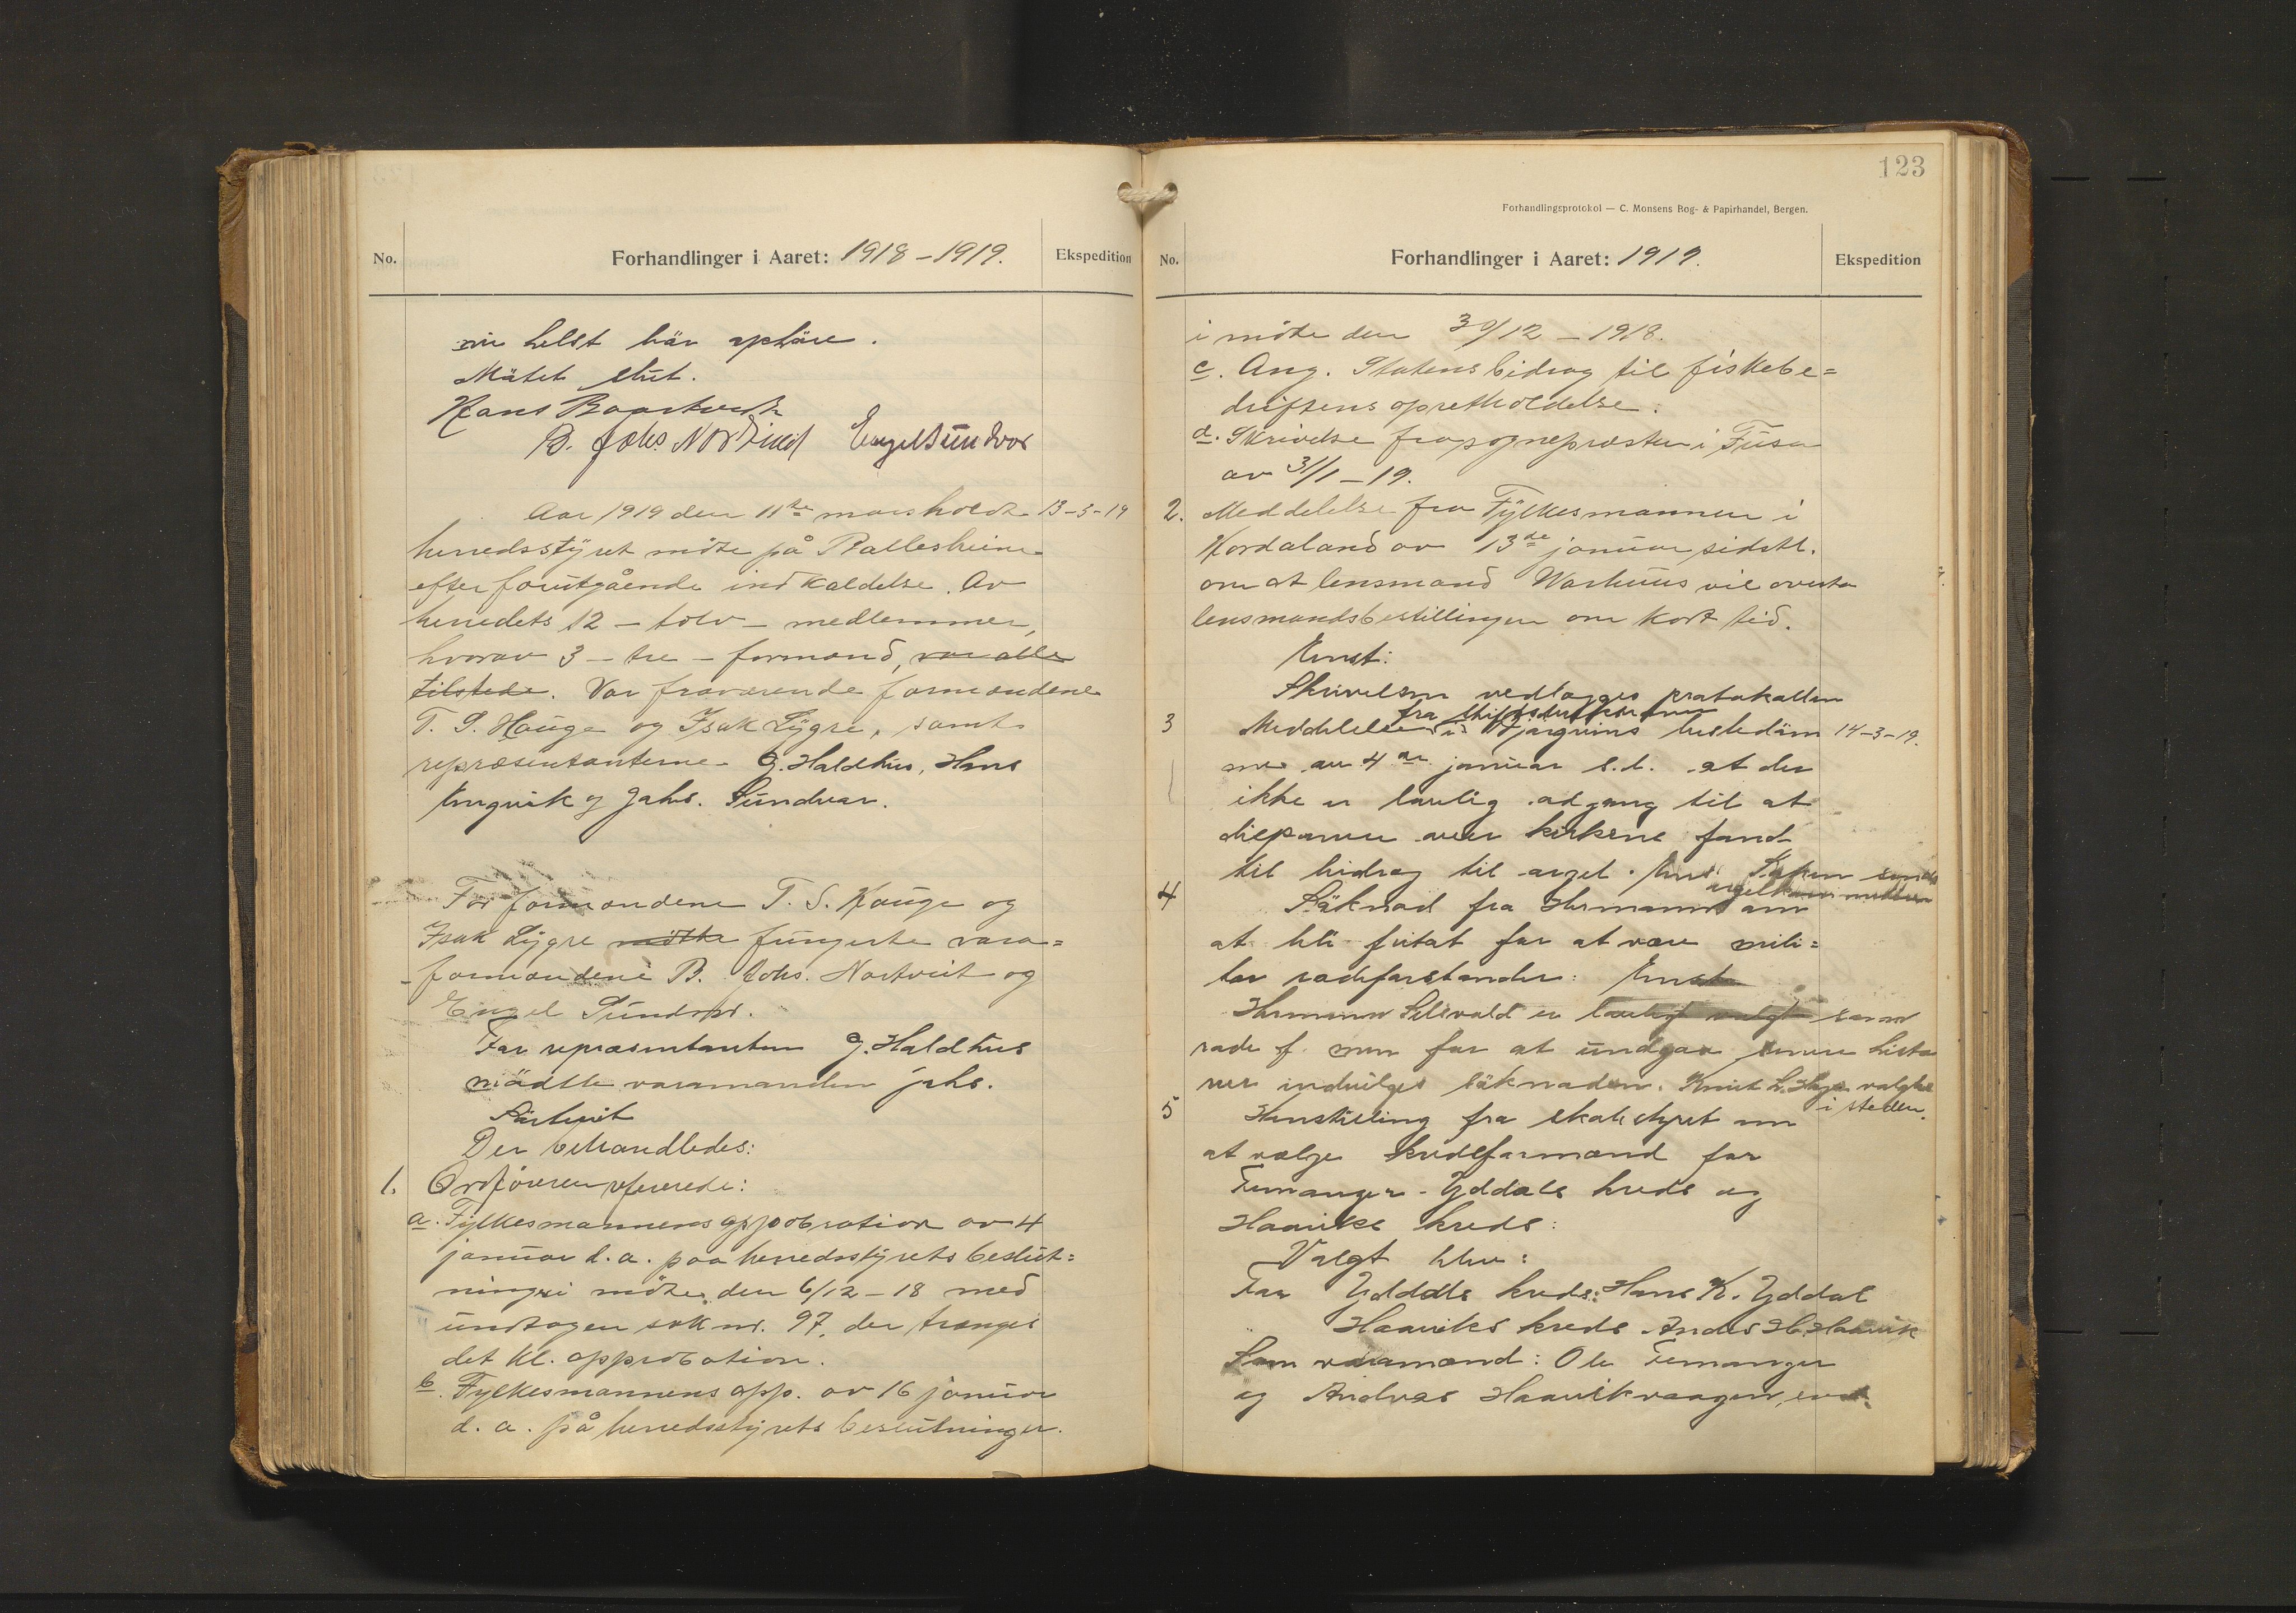 No.
Forhandlinger i Aaret: 1918-1919.
Ekspedition
helst bär ophöre.
Mötet slut.
Hans Baartvedt
B. Johs. Nordtveit Engel Sundvor
Aar 1919 den 11te mars holdt 13-3-19
herredsstyret möte på Ballesheim
efter forutgående indkaldelse. Av
herredets 12 - tolv - medlemmer,
hvorav 3 - tre - formænd, var alle
tilstede. Var fraværende formændene
T. S. Hauge og Isak Lygre, samt
repræsentanterne G. Haldhus, Hans
Engevik og Johs. Sundvor.
For formændene T. S. Hauge og
Isak Lygre mötte fungerte vara=
formændene B. Johs. Nortveit og
Engel Sundvor.
For repræsentanten G. Haldhus
mödtte varamanden Johs.
Sörtveit
Der behandledes:
1. Ordföreren refererede:
a. Fylkesmannens approbation av 4
januar d.a. paa herredsstyrets beslut=
ninger i möte den 6/12-18 med
undtagen sak nr. 97, der trænges
det kl. approbation.
b. Fylkesmannens app. av 16 januar
d.a. på herredsstyrets beslutninger
123
Forhandlingsprotokol — C. Monsens Bog- & Papirhandel, Bergen.
No.
Forhandlinger i Aaret: 1919.
Ekspedition
i möte den 30/12-1918.
c. Ang. Statens bidrag til fiskebe=
driftens opretholdelse.
d. Skrivelse fra sognepresten i Fusa
av 31/1-19.
2. Meddelelse fra Fylkesmannen i
Hordaland av 13de januar sidstl.
om at lensmand Warhuus vil overta
lensmandsbestillingen om kort tid.
Enst:
Skrivelsen vedlægges protokollen
fra stiftsdirektionen
3 Meddelelse i Bjørgvins bispedöm 14-3-19.
me av 4de januar s.d. at der
ikke er lovlig adgang til at
disponere over kirkens fond
til bidrag til orgel. Enst Saken sendes
orgelkommiteen
4 Söknad fra Hermann om
at bli fritat for at være mili=
tær rodeforstander: Enst
Hermann Selsvold er lovlig valgt som
rode f. men for at undgaa senere histo
rier indvilges söknaden. Knut L. Hage valgtes
i steden.
5 Henstilling fra skatestyret om
at vælge kredsformænd for
Femanger-Yddals kreds og
Haaviks kreds:
Valgt blev:
For Yddals kreds: Hans K. Yddal
Haaviks kreds Anders H. Haavik
Som varamænd: Ole Femanger
og Andreas Haavikvaagen, enst.